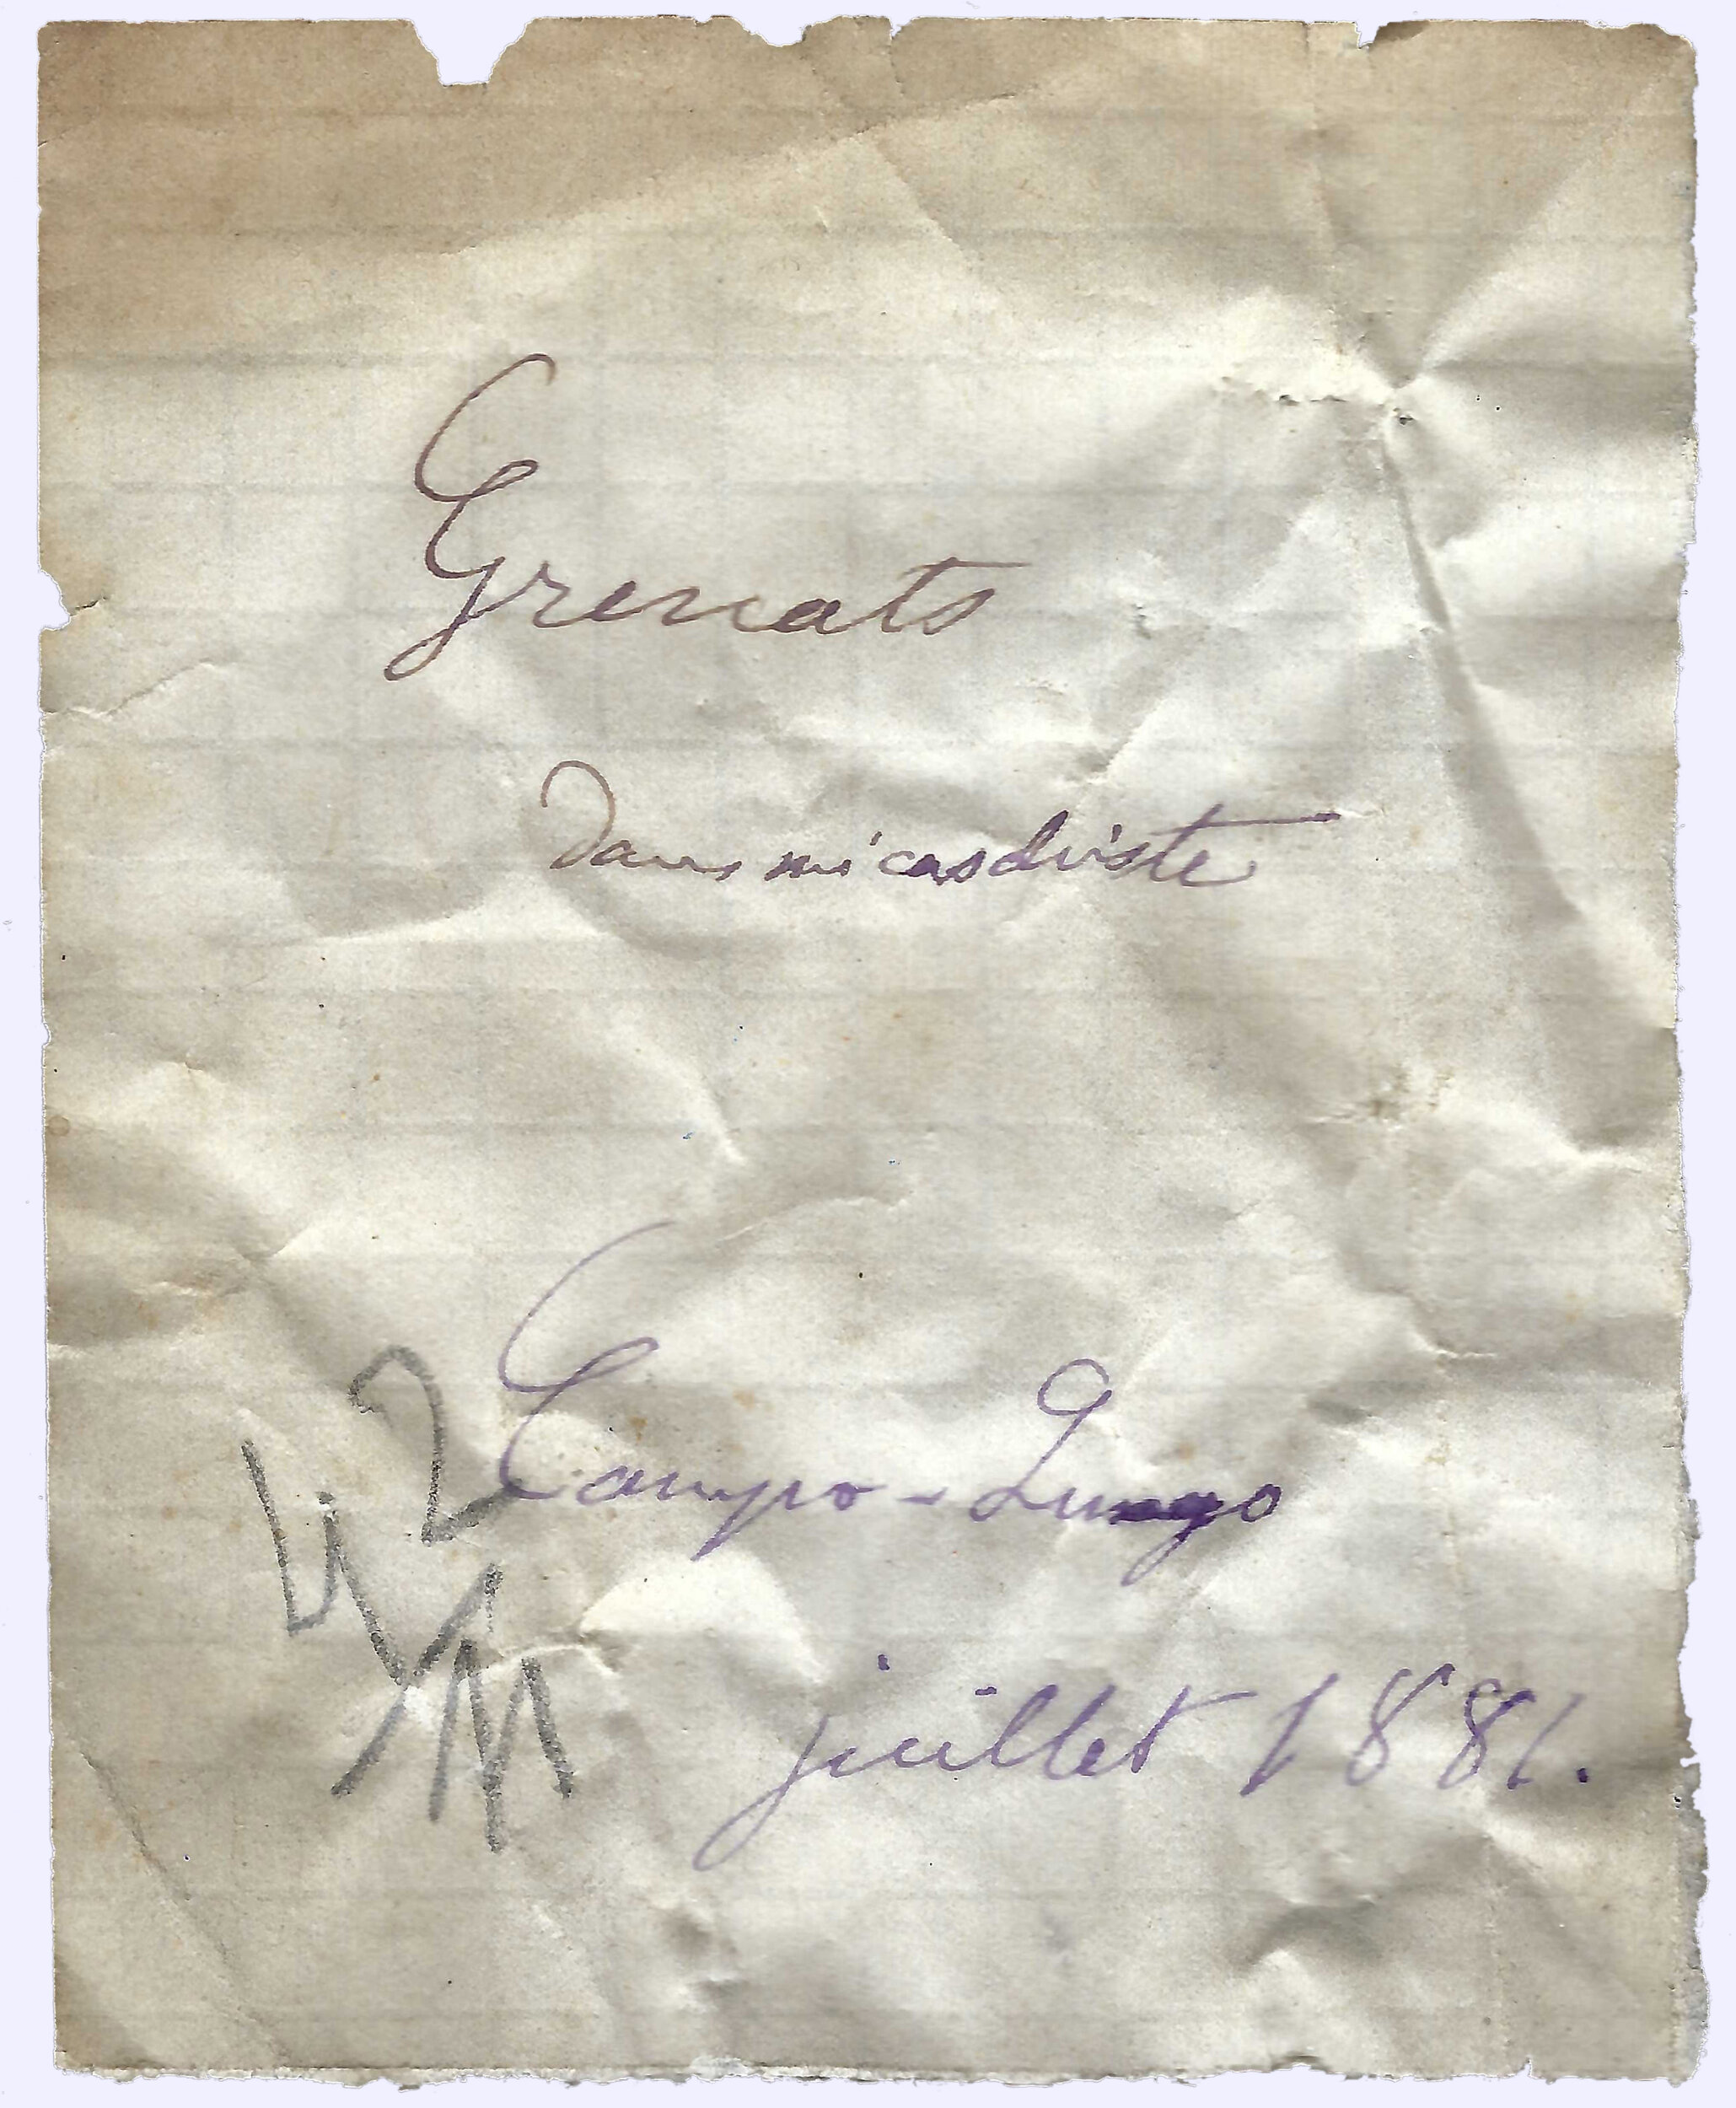 Grenats
dans micaschiste
Campo-Lungo
juillet 1881.
42